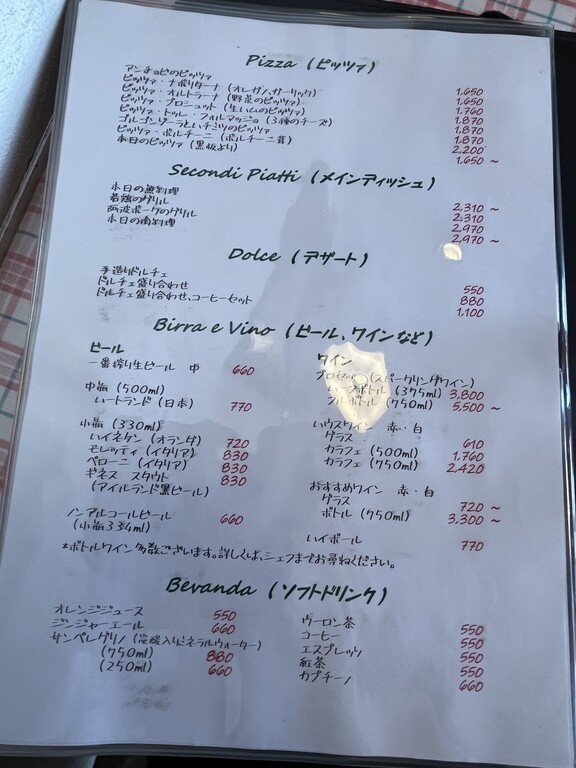 Pizza (ピッツァ)
アンチョビのピッツァ 1,650
ピッツァ・ナポリターナ (オレガノ、ガーリック) 1,650
ピッツァ・オルトラーナ (野菜のピッツァ) 1,760
ピッツァ・プロシュット (生ハムのピッツァ) 1,870
ピッツァ・クワトロ・フォルマッジョ (3種のチーズ) 1,870
ゴルゴンゾーラとハチミツのピッツァ 1,870
ピッツァ・ポルチーニ (ポルチーニ茸) 2,200
本日のピッツァ (黒板より) 1,650 ~
Secondi Piatti (メインディッシュ)
本日の魚料理 2,310 ~
若鶏のグリル 2,310
阿波ポークのグリル 2,970
本日の肉料理 2,970 ~
Dolce (デザート)
手造りドルチェ 550
ドルチェ盛り合わせ 880
ドルチェ盛り合わせ、コーヒーセット 1,100
Birra e Vino (ビール、ワインなど)
ビール
一番搾り生ビール 中 660
中瓶 (500ml)
ハートランド (日本) 770
小瓶 (330ml)
ハイネケン (オランダ) 720
モレッティ (イタリア) 830
ペローニ (イタリア) 830
ギネス スタウト 830
(アイルランド黒ビール)
ノンアルコールビール 660
(小瓶334ml)
ワイン
プロセッコ (スパークリングワイン)
ハーフボトル (375ml) 3,800
フルボトル (750ml) 5,500 ~
ハウスワイン 赤・白
グラス 610
カラフェ (500ml) 1,760
カラフェ (750ml) 2,420
おすすめワイン 赤・白
グラス 720 ~
ボトル (750ml) 3,300 ~
ハイボール 770
*ボトルワイン多数ございます。詳しくは、シェフまでお尋ねください。
Bevanda (ソフトドリンク)
オレンジジュース 550
ジンジャーエール 660
サンペレグリノ (炭酸入りミネラルウォーター)
(750ml) 880
(250ml) 660
ウーロン茶 550
コーヒー 550
エスプレッソ 550
紅茶 550
カプチーノ 660